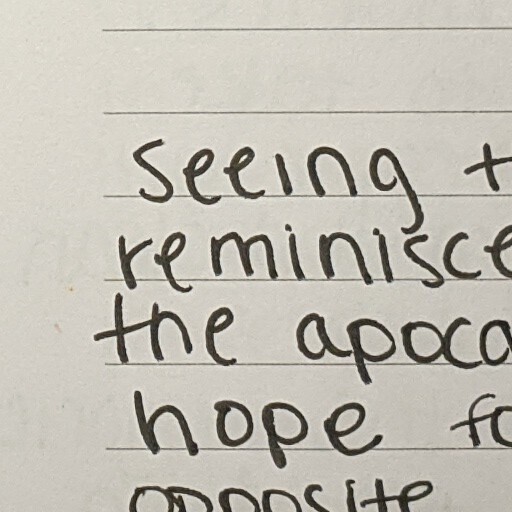 seeing t
reminisce
the apoca
hope fo
opposite